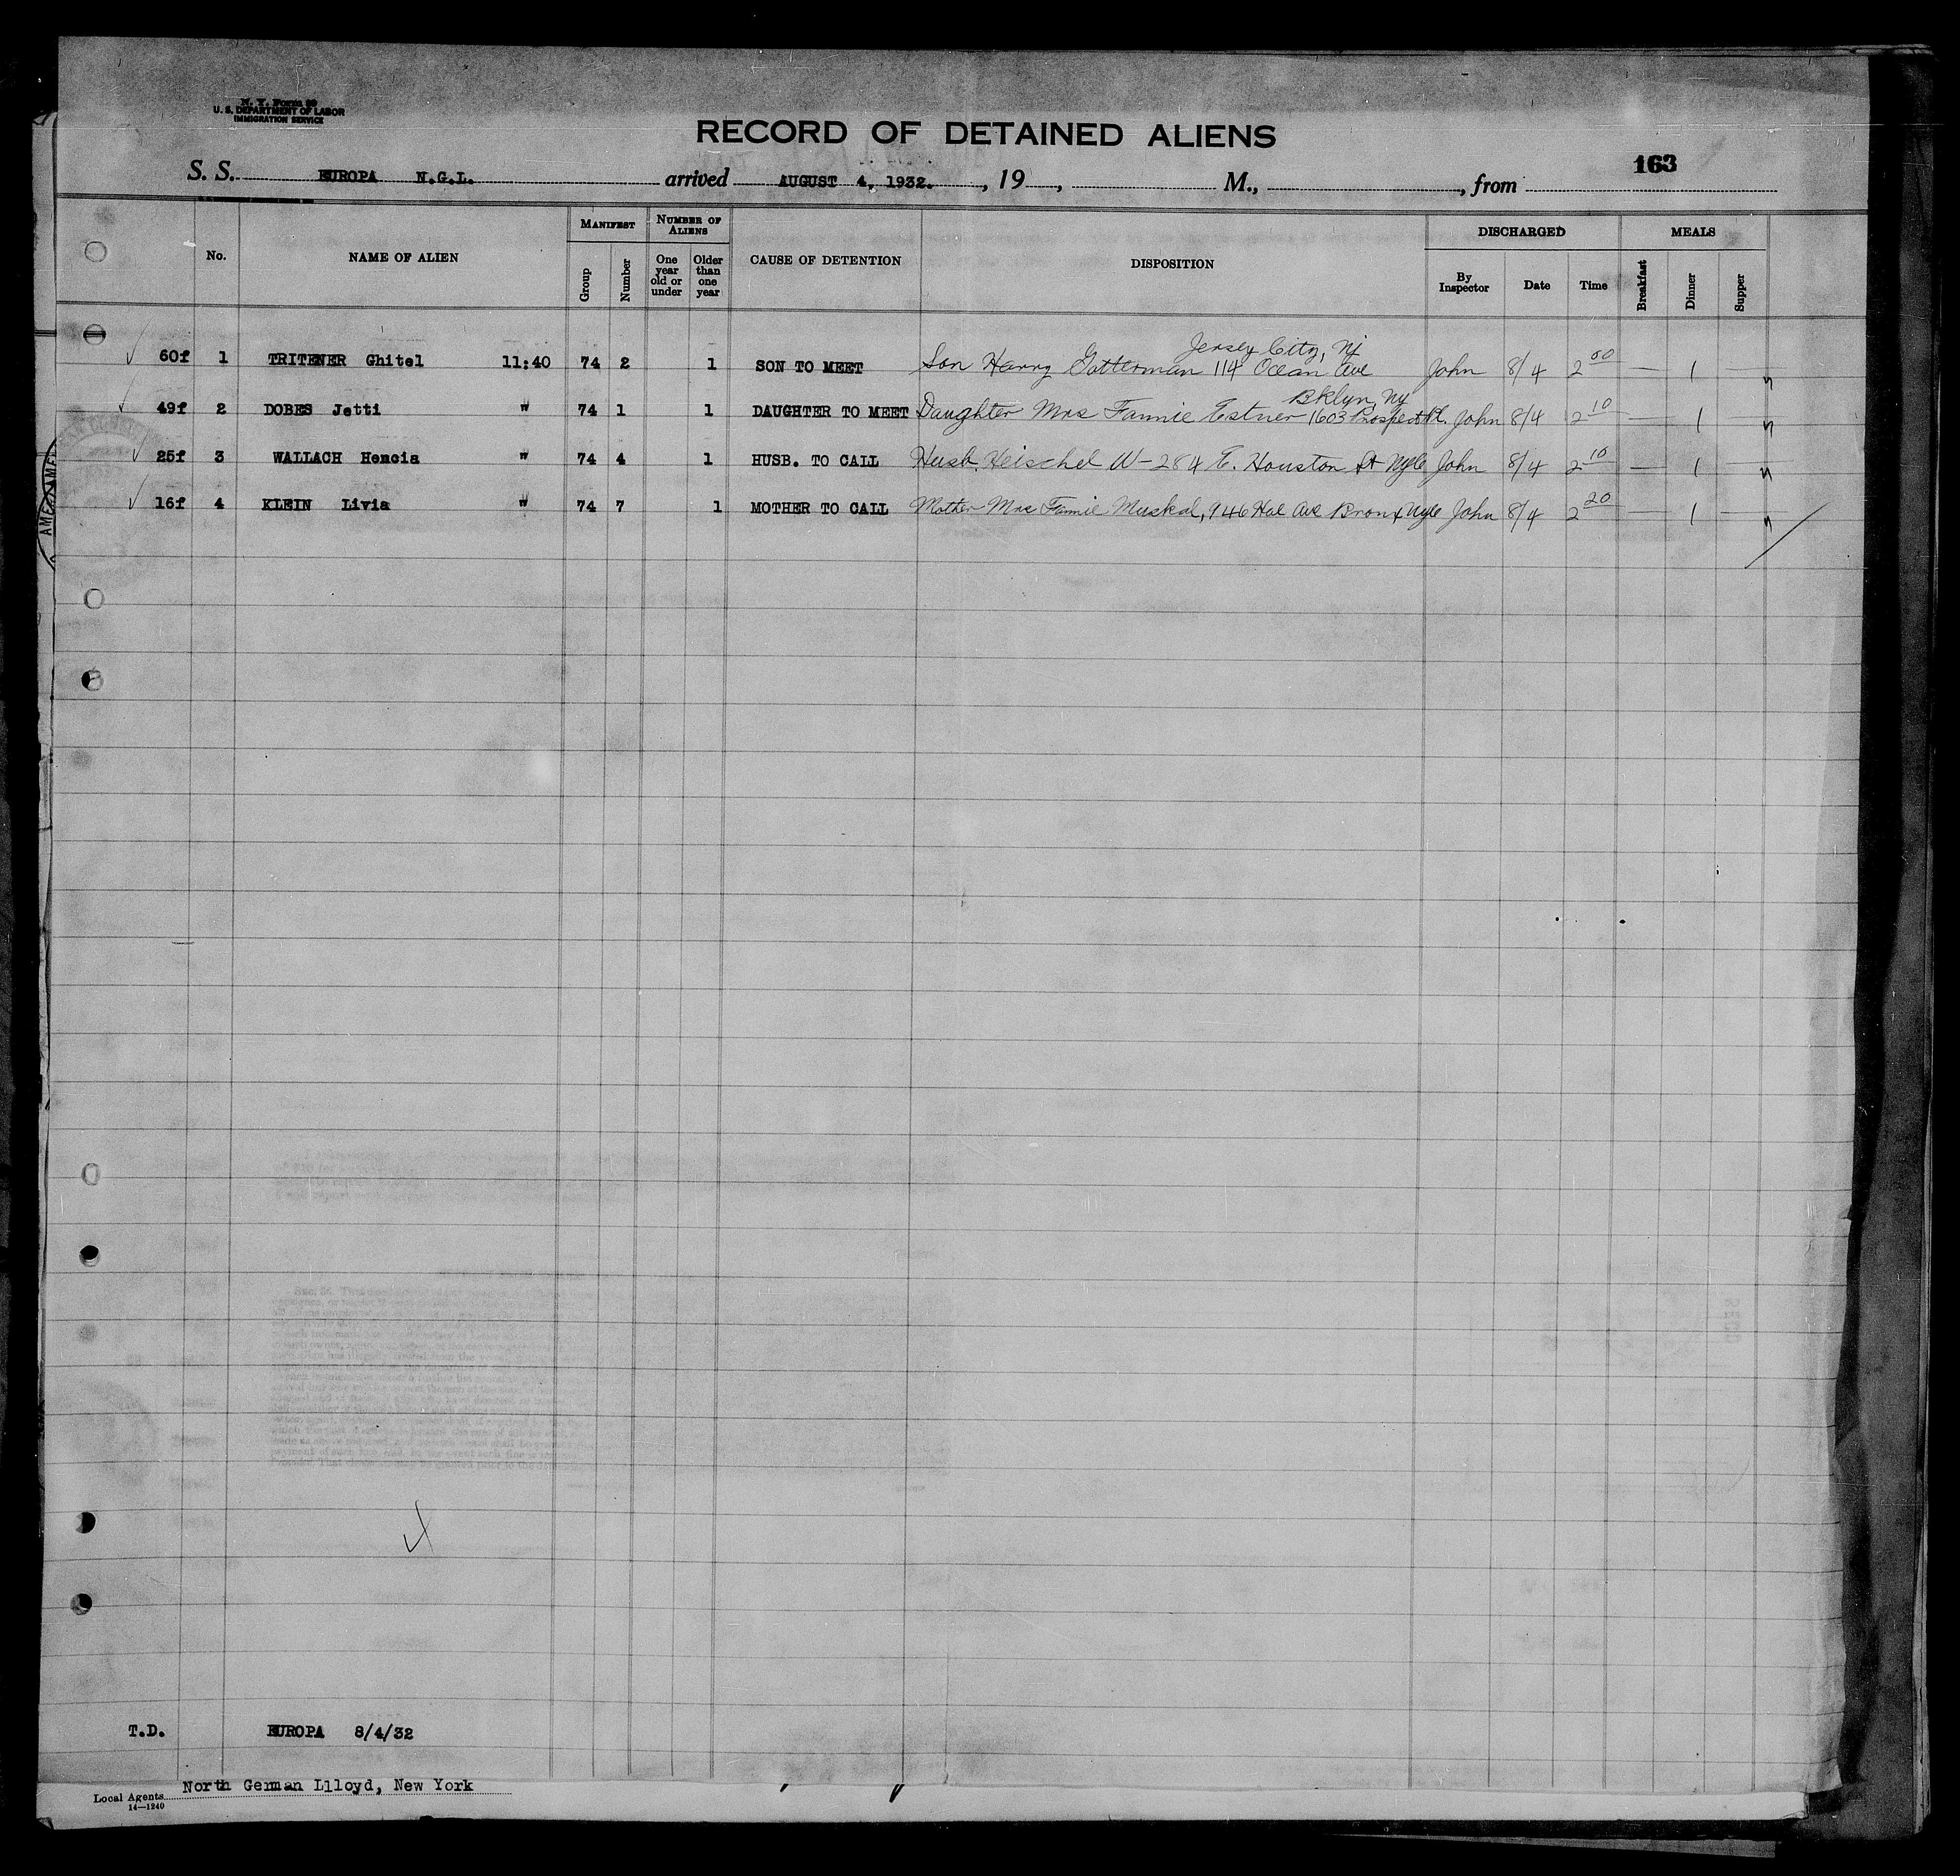 N. Y. Form 39
U. S. DEPARTMENT OF LABOR
IMMIGRATION SERVICE
RECORD OF DETAINED ALIENS
163
S. S. EUROPA N.G.L. arrived AUGUST 4, 1932. , 19 , M., , from
No. NAME OF ALIEN MANIFEST Group Number NUMBER OF ALIENS One year old or under Older than one year CAUSE OF DETENTION DISPOSITION DISCHARGED By Inspector Date Time MEALS Breakfast Dinner Supper
Jersey City, NJ
60f 1 TRITENER Ghitel 11:40 74 2 1 SON TO MEET Son Harry Gotterman 114 Ocean Ave John 8/4 2 00 — 1 —
Bklyn, Ny
49f 2 DOBES Jetti " 74 1 1 DAUGHTER TO MEET Daughter Mrs Fannie Estner 1603 Prospect Pl. John 8/4 2 10 — 1 —
25f 3 WALLACH Hencia " 74 4 1 HUSB. TO CALL Husb. Heischel W - 284 E. Houston St Nyc John 8/4 2 10 — 1 —
16f 4 KLEIN Livia " 74 7 1 MOTHER TO CALL Mother Mrs Fannie Muskal, 946 Ave Bronx Nyc John 8/4 2 20 — 1 —
T.D. EUROPA 8/4/32
Local Agents North German Llloyd, New York
14—1240